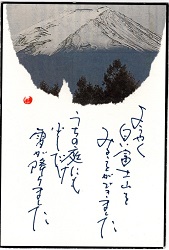 ようやく
白い富士山を
みることができました
うちの庭にも
少しだけ
雪が降りました